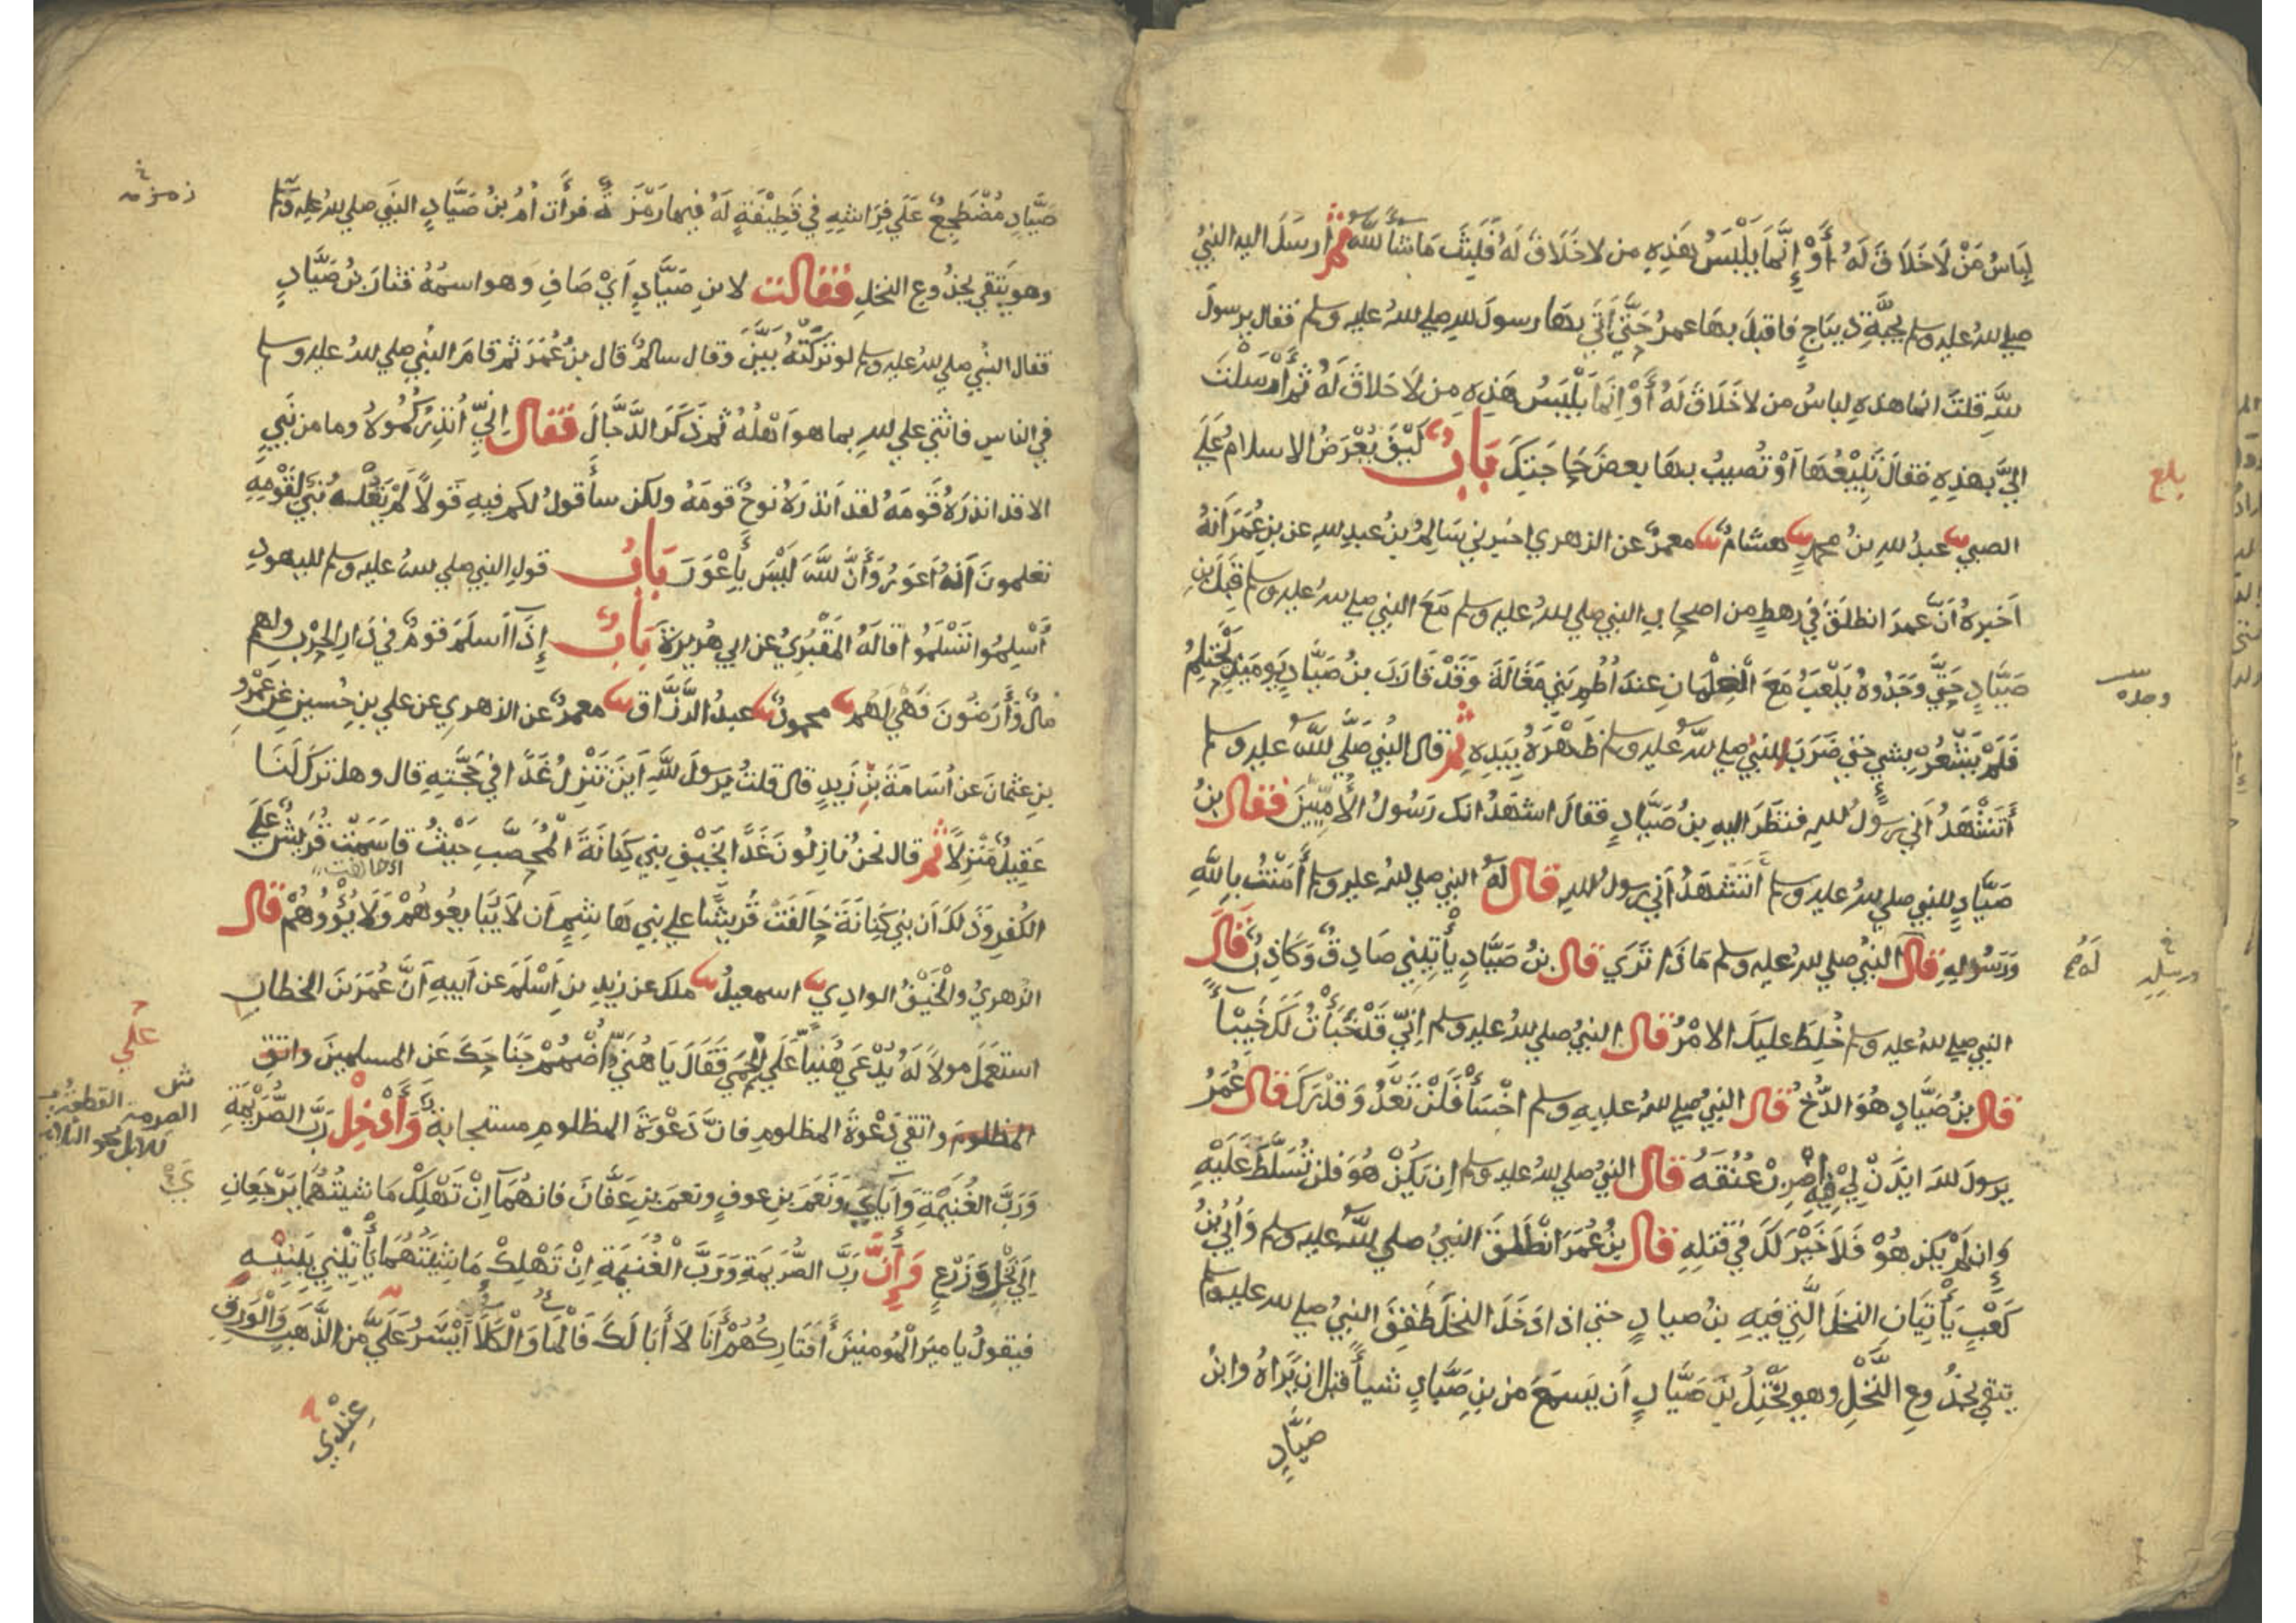 لِبَاسُ مَنْ لَا خَلَاقَ لَهُ أَوْ إِنَّمَا يَلْبَسُ هَذِهِ من لا خَلَاقَ لَهُ فَلَبِثَ مَا شَأَ اللَّهُ ثم ارسَلَ اليه النبيُ
صلي الله عليه وسلم بجُبَّةِ ديبَاجٍ فاقبلَ بهَا عمرُ حَتَّى اَتَي بهَا رسولَ اللهِ صلي اللهُ عليه وسلم فقال يرسولَ
اللَّهِ قلتَ انما هذهِ لِباسُ من لا خَلَاقَ لَهُ أَوْ اِنَّمَا يَلْبَسُ هَذِهِ من لَا خلاقَ لَهُ ثم أَرْسَلْتَ
اليَّ بهذِهِ فقالَ تَبِيْعُهَا اَوْ تُصِيبُ بهَا بعضَ حَاجَتِكَ بَابٌ كَيْفَ يُعْرَضُ الاسلامُ عَلَي
الصبي عبدُ اللهِ بنُ محمدٍ هشامٌ معمرٌ عن الزهري اخبرني سَالِمُ بنُ عبدِ اللهِ عن بنِ عُمَرَ اَنهُ
اَخبرهُ اَنَّ عمرَ انطلَقَ في رهطٍ من اصحابِ النبي صلي اللهُ عليه وسلم مَعَ النبي صلي اللهُ عليه وسلم قِبَلَ بنِ
صَيَّادٍ حتَّي وَجَدُوهُ يَلْعَبُ مَعَ الْغِلْمَانِ عندَ اُطُمِ بَنِي مَغَالَةَ وَقَدْ قَارَبَ بنُ صَيَّادٍ يَومَئِذٍ يَحْتَلِمُ
فَلَمْ يَشْعُرْ بشي حتي ضَرَبَ النبيُ صلي اللهُ عليه وسلم ظَهْرَهُ بِيَدِهِ ثم قال النبيُ صَلَّي اللَّهُ عليه وسلم
أَتَشْهَدُ اَني رسولُ اللهِ فنظَرَ اليهِ بنُ صَيَّادٍ فقالَ اشهَدُ انك رَسُولُ الأُمِّيِّينَ فقال بنُ
صَيَّادٍ للنبي صلي اللهُ عليه وسلم أَتَشهَدُ اَني رسولُ اللهِ قال لَهُ النبي صلي اللهُ عليه وسلم أَمَنْتُ بِاللَّهِ
وَرَسُولِهِ قال النبيُ صلي اللهُ عليه وسلم مَاذَا تَرَي قال بنُ صَيَّادٍ يأْتِيْنِي صَادِقٌ وَكَاذِبٌ قَالَ
النبي صلي الله عليه وسلم خُلِطَ عليكَ الامْرُ قال النبيُ صلي اللهُ عليه وسلم اِنِّي قَدْ خَبَأْتُ لَكَ خَبِيْأً
قال بنُ صَيَّادٍ هُوَ الدُّخُّ قال النبيُ صلي اللهُ عليه وسلم اخْسَأْ فَلَنْ تَعْدُ وَقَدْرَكَ قال عُمَرُ
يرسولَ اللهِ ايْذَنْ لِيْ فِيْهِ اضْرِبْ عُنُقَهُ قال النبيُ صلي اللهُ عليه وسلم اِن يَكُنْ هُوَ فلن تُسَلَّطَ عَلَيْهِ
وَاِن لَمْ يَكن هُوْ فَلَا خَيْرَ لَكَ فِي قتلِهِ قال بنُ عُمَرَ انْطَلَقَ النبيُ صلي اللَّهُ عليه وسلم وَاُبَيُّ بنُ
كَعْبٍ يَأْتِيَانِ النخلَ الَّتِي فيهِ بنُ صيادٍ حتي اذا دَخَلَ النخلَ طَفِقَ النبيُ صلي الله عليه وسلم
يتقي بجذُوعِ النَّخْلِ وهو يَخْتِلُ بنَ صَيَّادٍ اَن يَسمَعَ من بنِ صَيَّادٍ شيأً قبل ان يَرَاهُ وابنُ
صَيَّادٍ
بلغ
وجده
صَيَّادٍ مُضْطَجِعٌ عَلَي فِرَاشِهِ فِي قَطِيْفَةٍ لَهُ فيها رَمْزَةٌ فرأَت اُمُ بنُ صَيَّادٍ النبَي صلي اللهُ عليه وسلم
وهو يَتقي بجذُوعِ النخلِ فقالت لابنِ صَيَّادٍ اَيْ صَافِ وَهو اسمُهُ فثارَ بنُ صَيَّادٍ
فقال النبيُ صلي اللهُ عليه وسلم لو تَرَكَتْهُ بَيَّنَ وقال سالمٌ قال بنُ عُمَرَ ثم قامَ النبيُ صلي اللهُ عليه وسلم
في الناسِ فاثني علي اللهِ بما هو اَهْلُهُ ثم ذَكَرَ الدَّجَّالَ فقال اِنِّي أُنْذِرُكُمُوهُ وما من نَبِيٍ
الا قد انذرَهُ قَومَهُ لقد اَنذرَهُ نوحٌ قومَهُ ولكن سأَقولُ لكم فيهِ قَولاً لَمْ يَقُلْهُ نبي لِقَوْمِهِ
تعلمونَ اَنهُ اَعوَرُ وَأَنَّ اللَّهَ لَيْسَ بِأَعْوَرَ بَابُ قولِ النبي صلي اللهُ عليه وسلم لليهودِ
أَسْلِمُوا تَسْلَمُوا قالَهُ المَقْبُرِيُ عن ابي هُريرةَ بَابٌ إِذَا اَسلَمَ قومٌ فِي دَارِ الحَرْبِ ولهم
مالٌ وَأَرَضُونَ فَهْيَ لَهم محمودٌ عبدُ الرَّزَّاقِ معمرٌ عن الزهري عن علي بنِ حُسينٍ عن عَمْرِو
بنِ عثمانَ عن اُسَامَةَ بنِ زَيدٍ قال قلتُ يَرسولَ اللَّهِ اَينَ تَنْزِلُ غَدًا فِي حَجَّتِهِ قال وهل تركَ لَنَا
عَقِيلٌ مَنْزِلاً ثم قال نحنُ نازِلُونَ غَدًا بخَيْفِ بَنِي كِنَانَةَ الْمُحَصَّبِ حَيْثُ قاسَمَتْ قُرَيشٌ عَلَي
الكُفرِ وَذَلكَ اَن بني كِنَانَةَ حَالفَتْ قُريشًا علي بني هَاشِمٍ اَن لَا يُبَايعُوهُمْ وَلَا يُؤْوُوهُمْ قال
الزهريُ والْخَيْفُ الوادِي اسمعيلُ ملك عن زيدِ بنِ اَسْلَمَ عن اَبيهِ اَنَّ عُمَرَ بنَ الخطابِ
استَعمَلَ مولاً لَهُ يُدْعَي هُنَيّاً عَلَي الْحِمَي فَقَالَ يَا هُنَيُّ اُضْمُمْ جَنَاحَكَ عَن المسلمينَ واتقِ
المظلومَ واتقي دَعْوةَ المظلومِ فانَّ دَعْوَةَ المظلومِ مستجابةٌ وَأَدْخِلْ رَبَّ الصُّرَيْمَةِ
وَرَبَّ الْغُنَيْمَةِ وَاَيَايَ وَنَعَمَ بنِ عوفٍ ونعمَ بنِ عَفَّانَ فانهُمَا اِنْ تَهْلِكْ مَاشيتُهُمَا يَرْجِعَانِ
اِلَي نَخْلٍ وَزَرْعٍ وَإِنَّ رَبَّ الصُّرَيمَةِ وَرَبَّ الْغُنَيْمَةِ اِنْ تَهْلِكْ مَاشِيَتُهُمَا يَأْتِيْنِي بِبَنِيْهِ
فيقولُ يا ميرَ الْمُومنينَ أَفتَارِكُهُمْ أَنَا لَا أَبَا لَكَ فَالْمَا وَالْكَلأُ اَيْسَرُ عَلَيَّ من الذَّهَبِ وَالْوَرِقِ
عِنْدِي
علي
القطعة
الصرمة